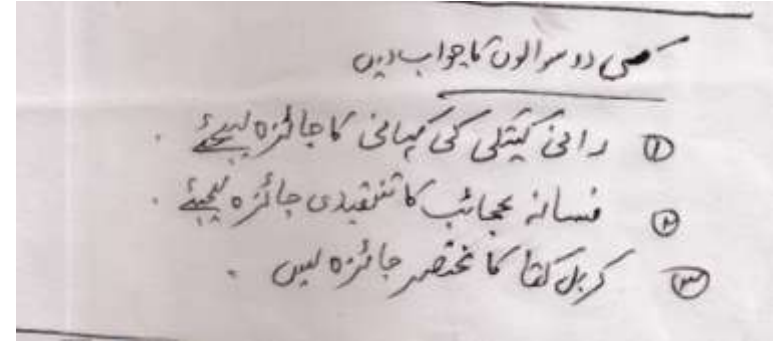 کسی دو سوالوں کا جواب دیں
① رانی کیتکی کی کہانی کا جائزہ لیجئے۔
② فسانہ عجائب کا تنقیدی جائزہ لیجئے۔
③ کربل کتھا کا مختصر جائزہ لیں۔